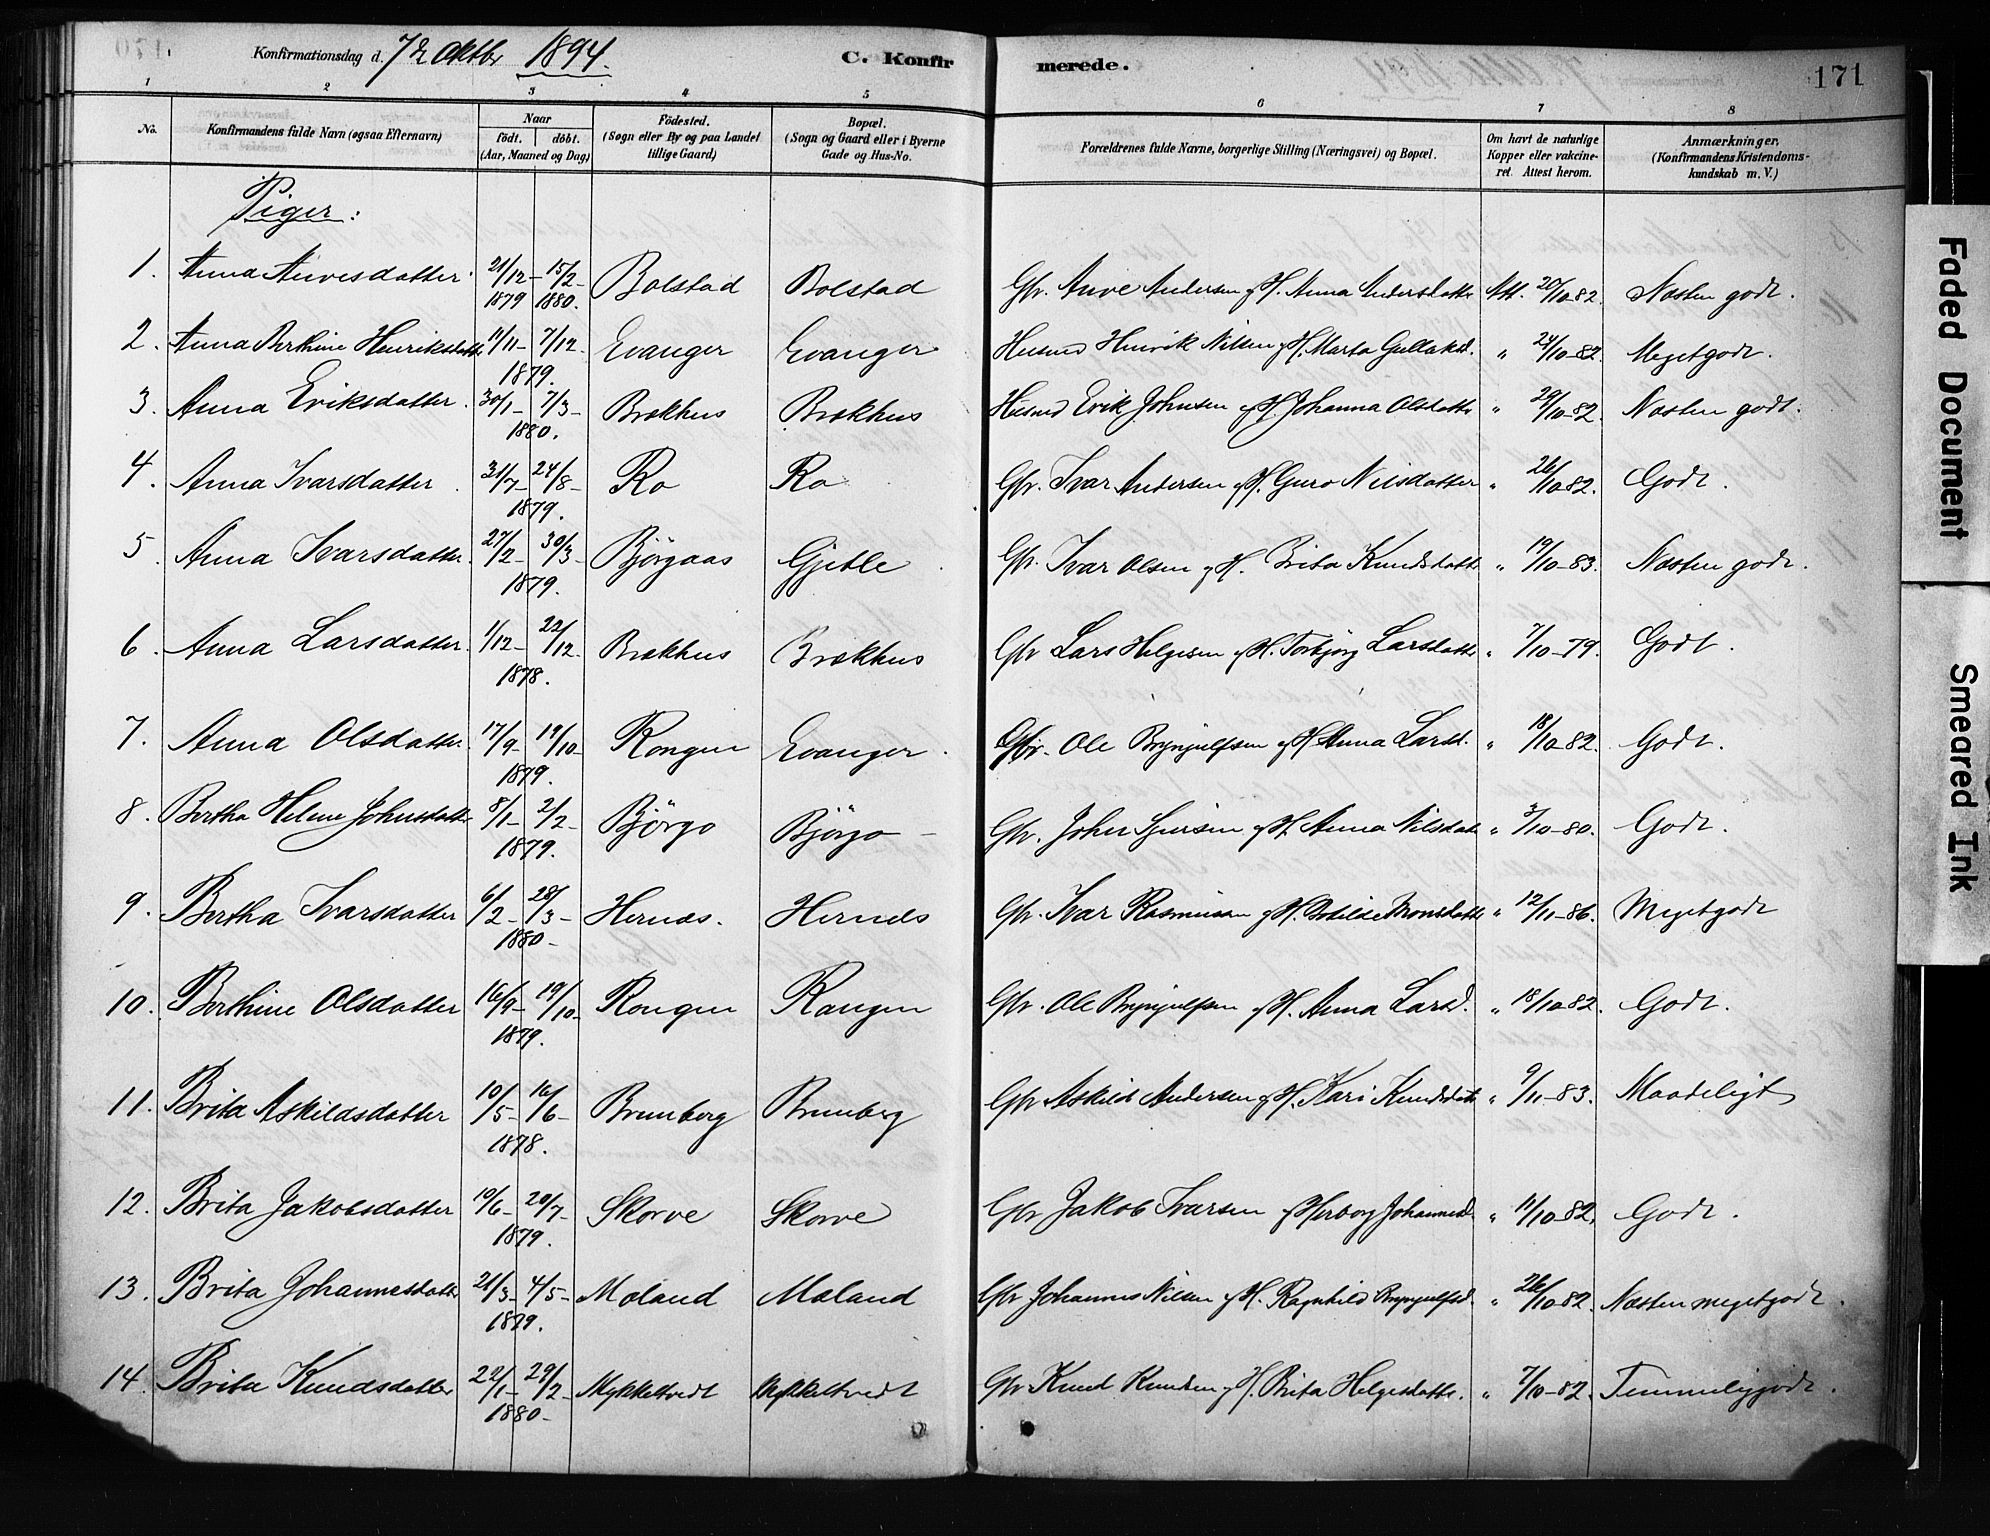 Konfirmationsdag d. 7de Oktbr 1894.
C. Konfir merede.
171
1 2 3 4 5 6 7 8
No.
Konfirmandens fulde Navn (ogsaa Efternavn)
Naar
født. døbt.
(Aar, Maaned og Dag)
Fødested.
(Sogn eller By og paa Landet
tillige Gaard)
Bopæl.
(Sogn og Gaard eller i Byerne
Gade og Hus-No.
Forældrenes fulde Navne, borgerlige Stilling (Næringsvei) og Bopæl.
Om havt de naturlige
Kopper eller vakcine-
ret. Attest herom.
Anmærkninger.
(Konfirmandens Kristendoms-
kundskab m. V.)
Piger:
1. Anna Anvesdatter 21/12- 15/2- Bolstad Bolstad Gbr. Anve Andersen og H. Anna Andersdatter Att. 20/10-82. Næsten godt.
1879 1880.
2. Anna Berthine Henriksdatter 11/11- 7/12- Evanger Evanger Husmd Henrik Nilsen og H. Marta Gullaksd. " 24/10-82. Megetgodt.
1879.
3. Anna Eriksdatter. 30/1- 7/3- Brækhus Brækhus Husmd Erik Johnsen og H. Johanna Olsdatter " 29/10-82. Næsten godt.
1880.
4. Anna Ivarsdatter 31/7- 24/8- Ro Ro Gbr. Ivar Andersen og H. Guro Nilsdatter " 26/10-82. Godt.
1879.
5. Anna Ivarsdatter. 27/2- 30/3- Bjørgaas Gjetle Gbr. Ivar Olsen og H. Brita Knudsdatter " 19/10-83. Næsten godt.
1879.
6. Anna Larsdatter. 1/12- 22/12- Brækhus Brækhus Gbr Lars Helgesen og H. Torbjørg Larsdatter " 7/10-79. Godt.
1878.
7. Anna Olsdatter. 17/9- 19/10- Rongen Evanger. Gbr. Ole Brynjulfsen og H. Anna Larsd. " 18/10-82. Godt.
1879.
8. Bertha Helene Johnsdatter 8/1- 2/2- Bjørgo Bjørgo Gbr. John Sjursen og H. Anna Nilsdat. " 3/10-80. Godt.
1879.
9. Bertha Ivarsdatter 6/2- 28/3- Hernæs. Hernæs Gbr. Ivar Rasmussen og H. Botilde Monsdatter " 12/11-86. Megetgodt
1880-
10. Berthine Olsdatter 16/9- 19/10- Rongen Rongen Gbr. Ole Brynjulfsen og H. Anna Larsd. " 18/10-82. Godt.
1879.
11. Brita Askildsdatter 10/5- 16/6- Brunborg Brunborg Gbr Askild Andersen og H. Kari Knudsdat. " 9/11-83. Maadeligt
1878.
12. Brita Jakobsdatter 10/6- 20/7- Skorve Skorve Gbr Jakob Ivarsen og Herborg Johannesd. " 11/10-82. Godt.
1879.
13. Brita Johannesdatter 21/3- 4/5- Moland Moland Gbr Johannes Nilsen og H. Ragnhild Brynjulfsd. " 26/10-82. Næsten megetgodt.
1879.
14. Brita Knudsdatter 22/1- 29/2- Mykkeltvedt Mykkeltvedt Gbr Knud Knudsen og H. Brita Helgesdatter. " 7/10-82. Temmeliggodt.
1880-
Faded Document
Smeared Ink